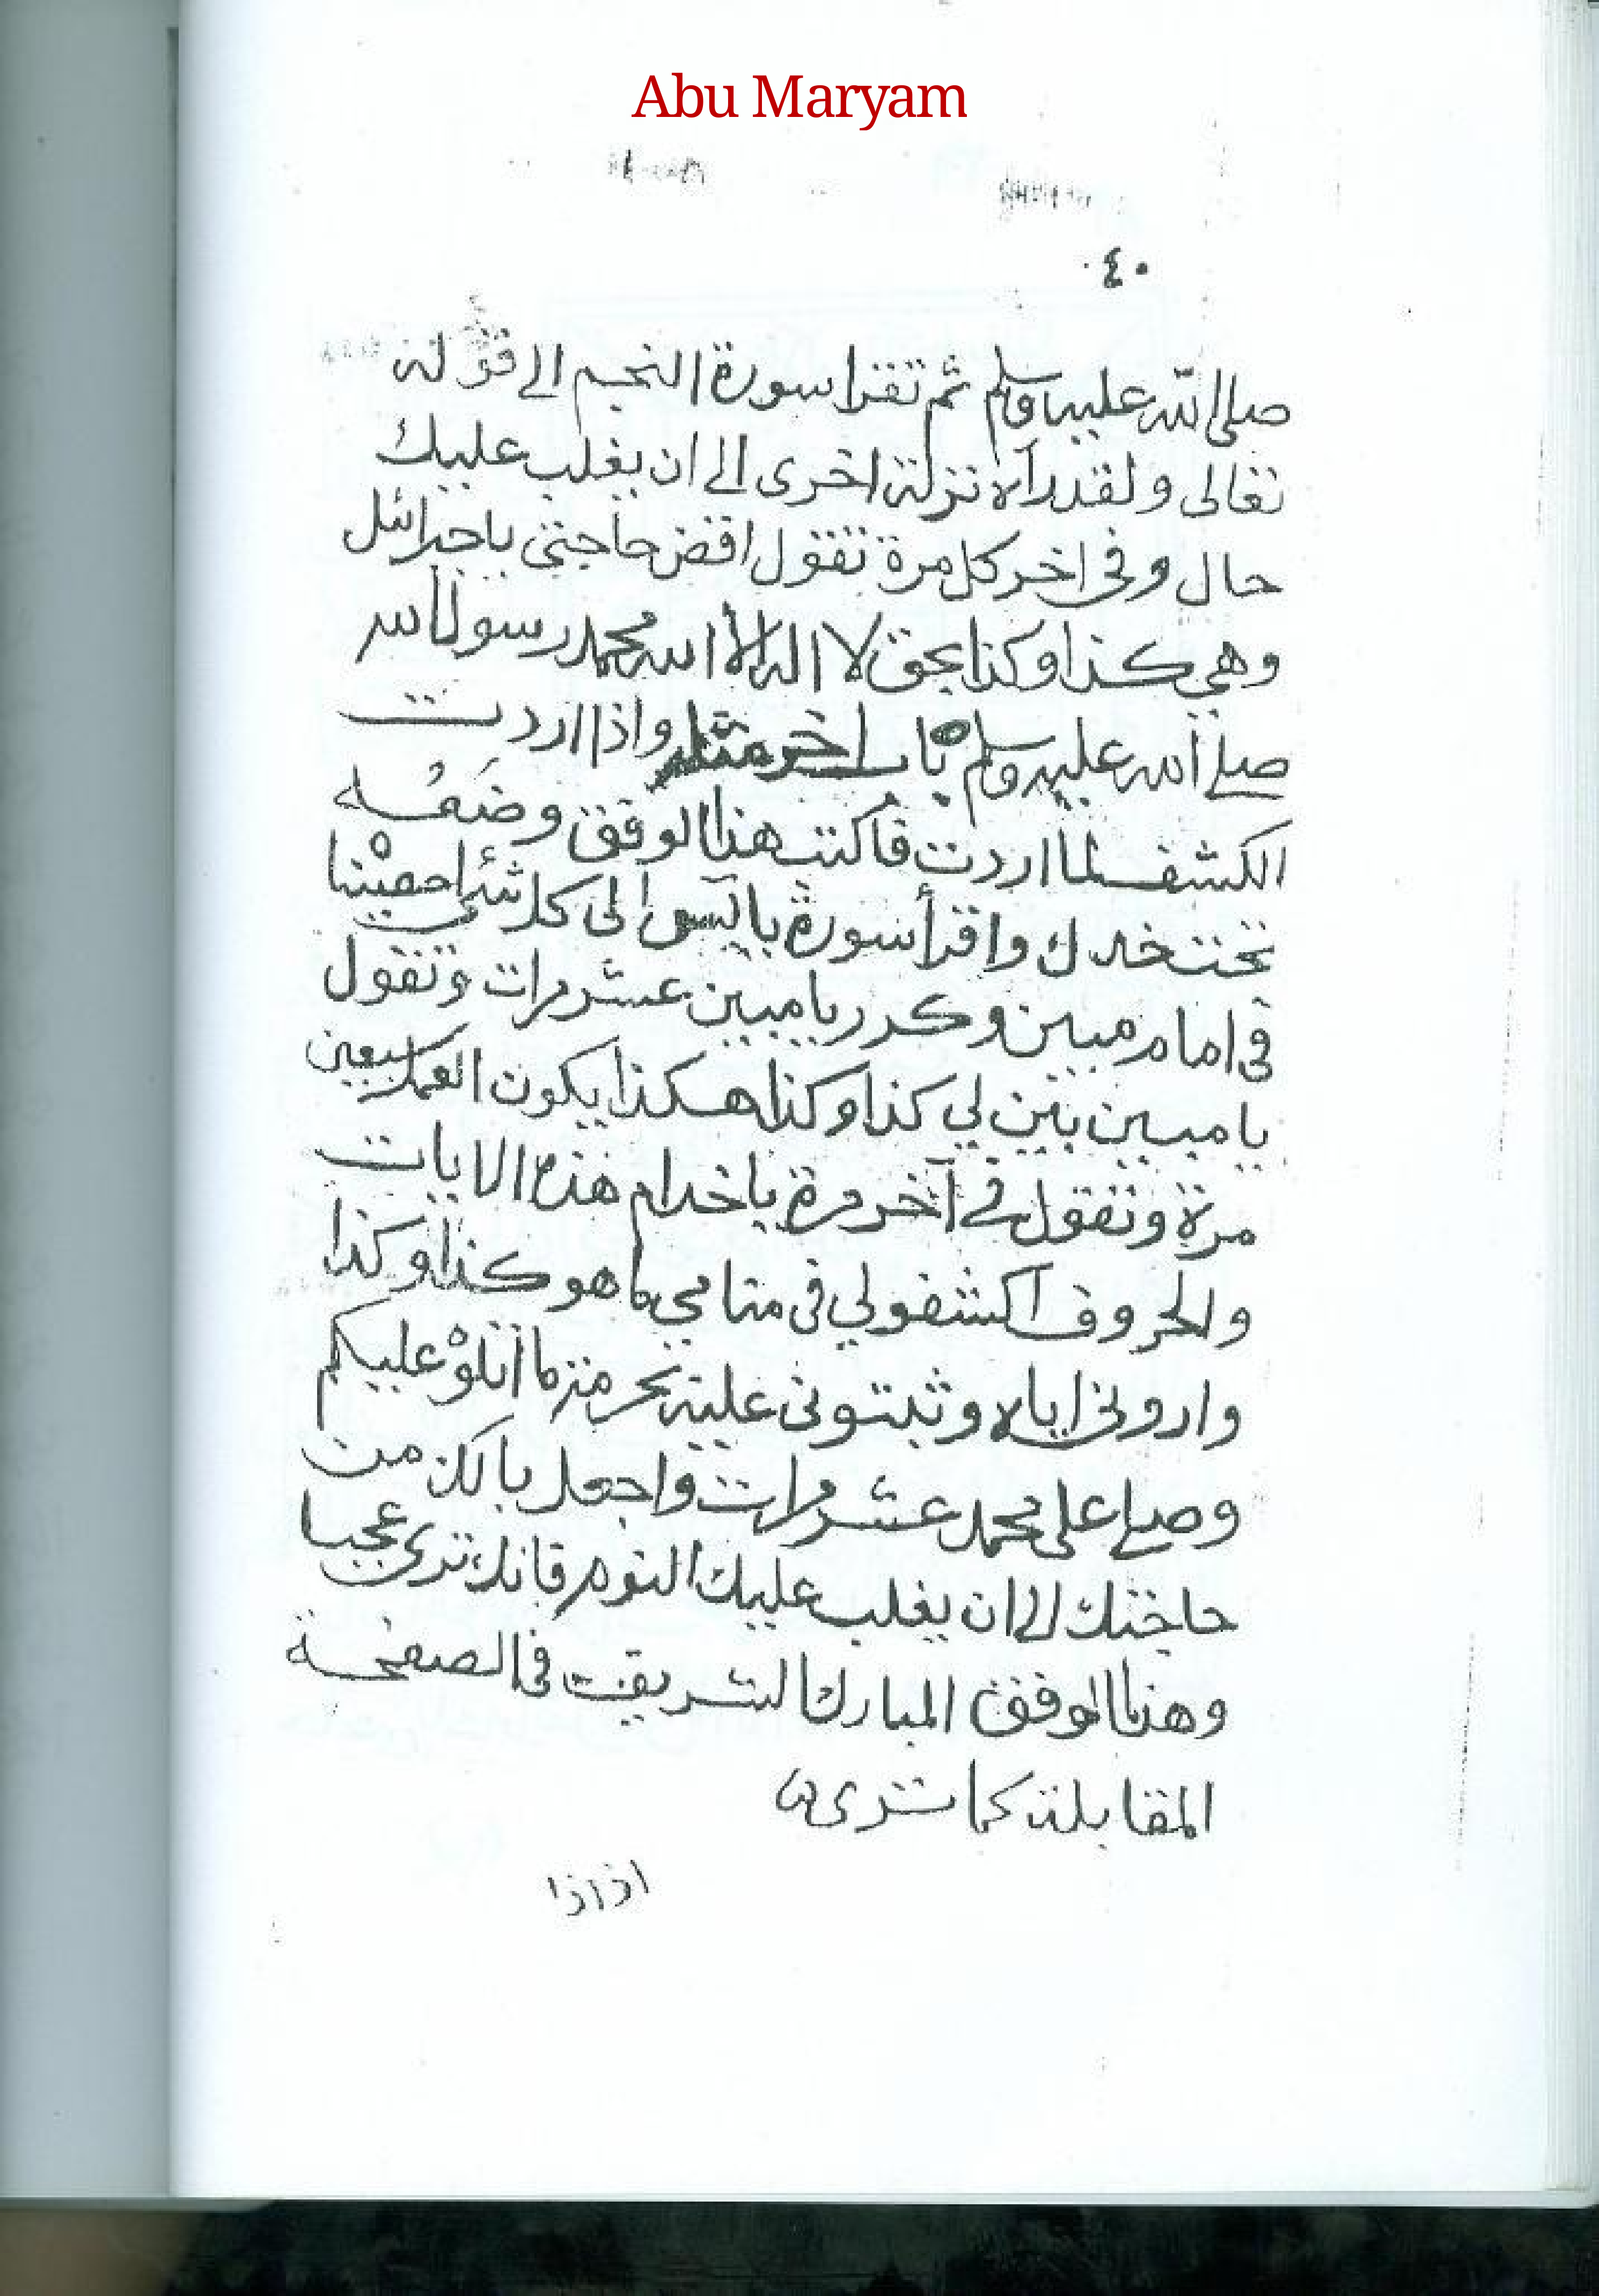 Abu Maryam
٤٠
صلى الله عليه وسلم ثم تقرا سورة النجم الى قوله
تعالى ولقد رآه نزلة اخرى الى ان يغلب عليك
حال وفى اخر كل مرة تقول اقض حاجتى ياجبرائل
وهي كذا وكذا بحق لا اله الا الله محمد رسول الله
صلى الله عليه وسلم باب اخر مثله واذا اردت
الكشف لما اردت فاكتب هذا الوفق وضعه
تحت خدك واقرأ سورة يا يس الى كل شئ احصيْنا
فى امام مبين وكرر يا مبين عشر مرات وتقول
يا مبين بين لي كذا وكذا هكذا يكون العمل سبعين
مرة وتقول في آخر مرة ياخدام هذه الايات
والحروف اكشفولي فى منامي ما هو كذا وكذا
وارونى اياه وثبتونى عليه بحرمة ما أتلوْ عليكم
وصلى على محمد عشر مرات واجعل بالك من
حاجتك الى ان يغلب عليك النوم فانك ترى عجبا
وهذا الوفق المبارك الشريف فى الصفحة
المقابلة كما ترى
اذ اذا